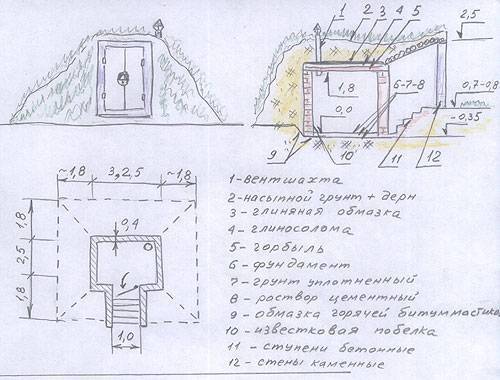 1
2
3
4
5
2,5
1,8
6-7-8
0,7-0,8
0,0
-0,35
9
10
11
12
~1,8
3,2,5
~1,8
1,8
0,4
2,5
1,8
1,0
1-вентшахта
2-насыпной грунт + дерн
3 - глиняная обмазка
4 - глиносолома
5 - горбыль
6 - фундамент
7 - грунт уплотненный
8 - раствор цементный
9 - обмазка горячей битуммастикой
10 - известковая побелка
11 - ступени бетонные
12 - стены каменные